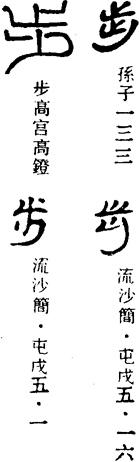 步
孫子一三三
步
流沙簡·屯戍五·一六
步
步高宫高鐙
步
流沙簡·屯戍五·一